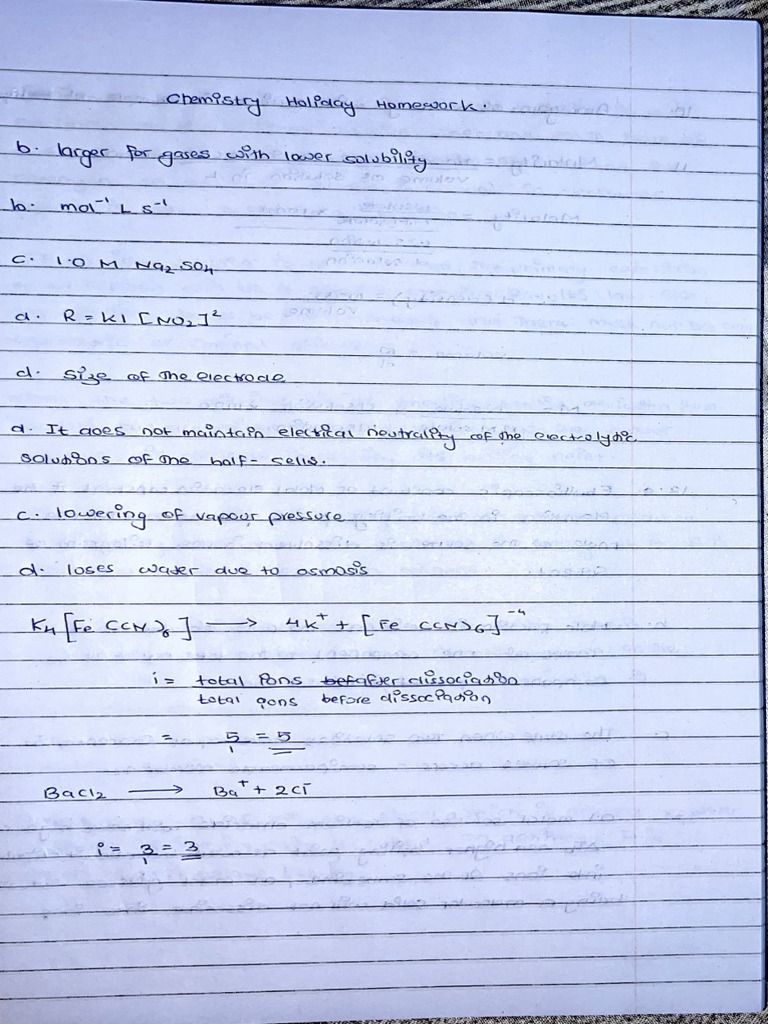 Chemistry Holiday Homework.
b. larger for gases with lower solubility
b. mol⁻¹ L s⁻¹
c. 1.0 M Na₂SO₄
a. R = k1 [NO₂]²
d. size of the electrode
d. It does not maintain electrical neutrality of the electrolytic
solutions of the half-cells.
c. lowering of vapour pressure
d. loses water due to osmosis
K₄[Fe(CN)₆] → 4K⁺ + [Fe(CN)₆]⁻⁴
i = total ions after dissociation
total ions before dissociation
= 5/1 = 5
BaCl₂ → Ba⁺ + 2Cl⁻
i = 3/1 = 3